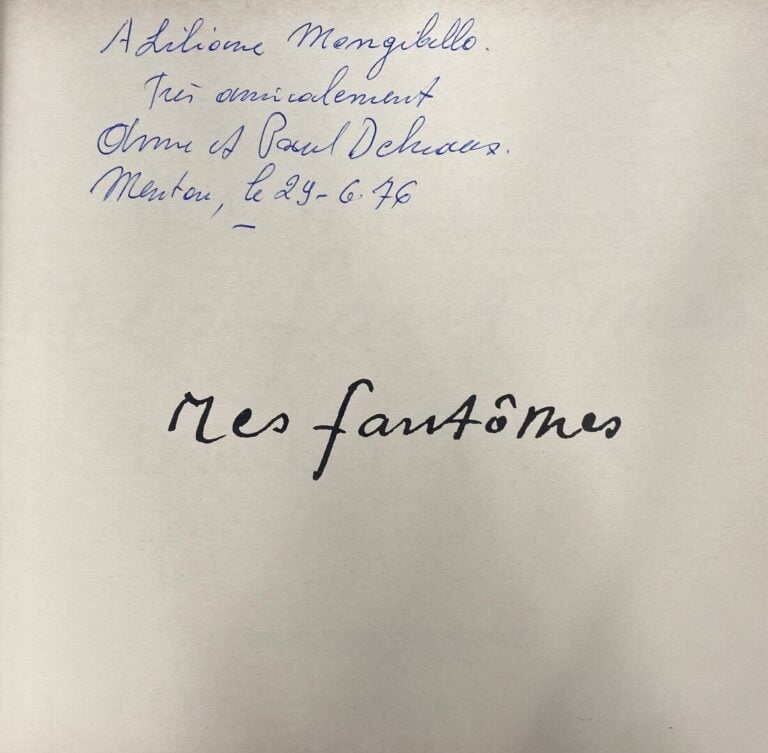 A Liliane Mangibello.
Très amicalement
Anne et Paul Delvaux.
Menton, le 29-6.76
Mes fantômes